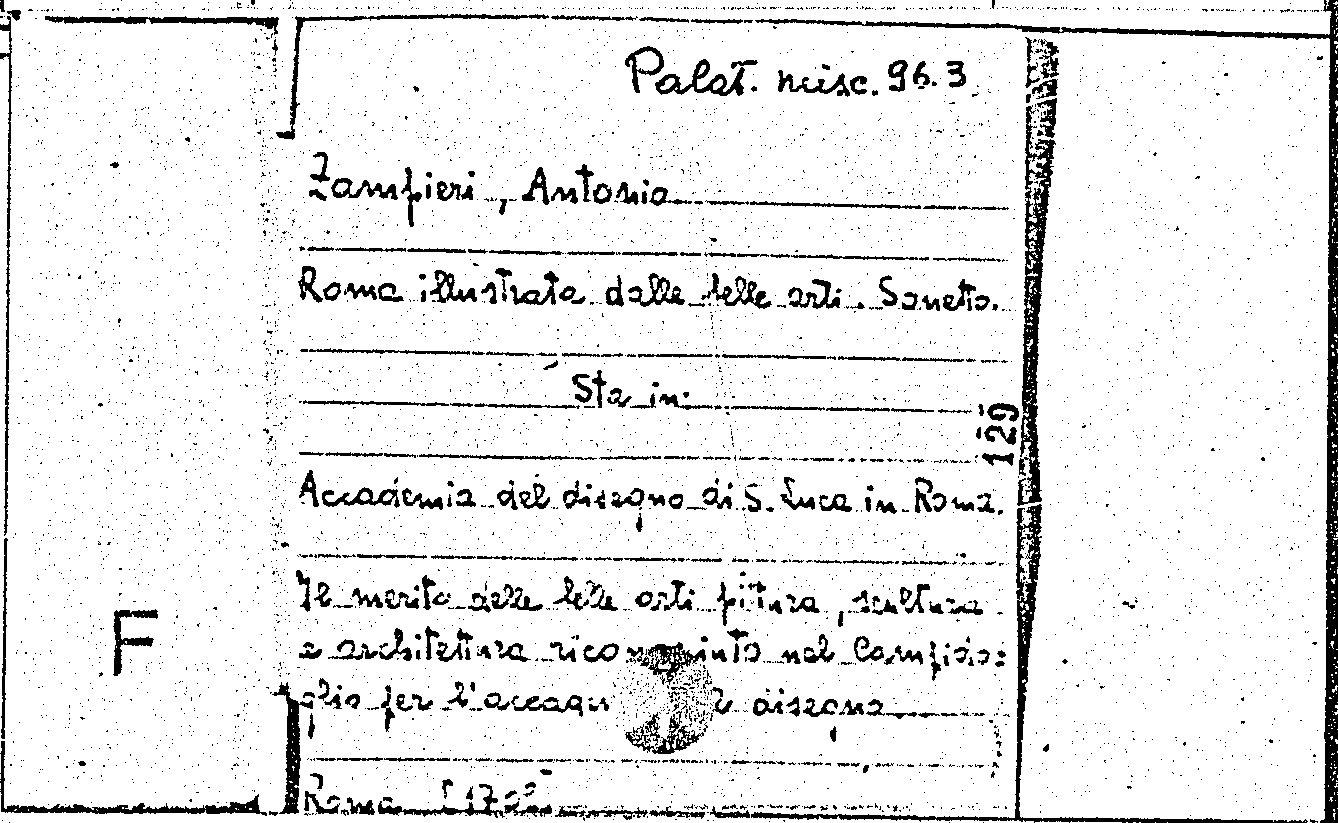 Palat. misc. 96.3
Zampieri, Antonio
Roma illustrata dalle belle arti. Sonetto.
Sta in:
129
Accademia del disegno di S. Luca in Roma.
Il merito delle belle arti pitura, scultura
e architettura riconosciuto nel Campido=
F
glio per l'accade disegno
Roma